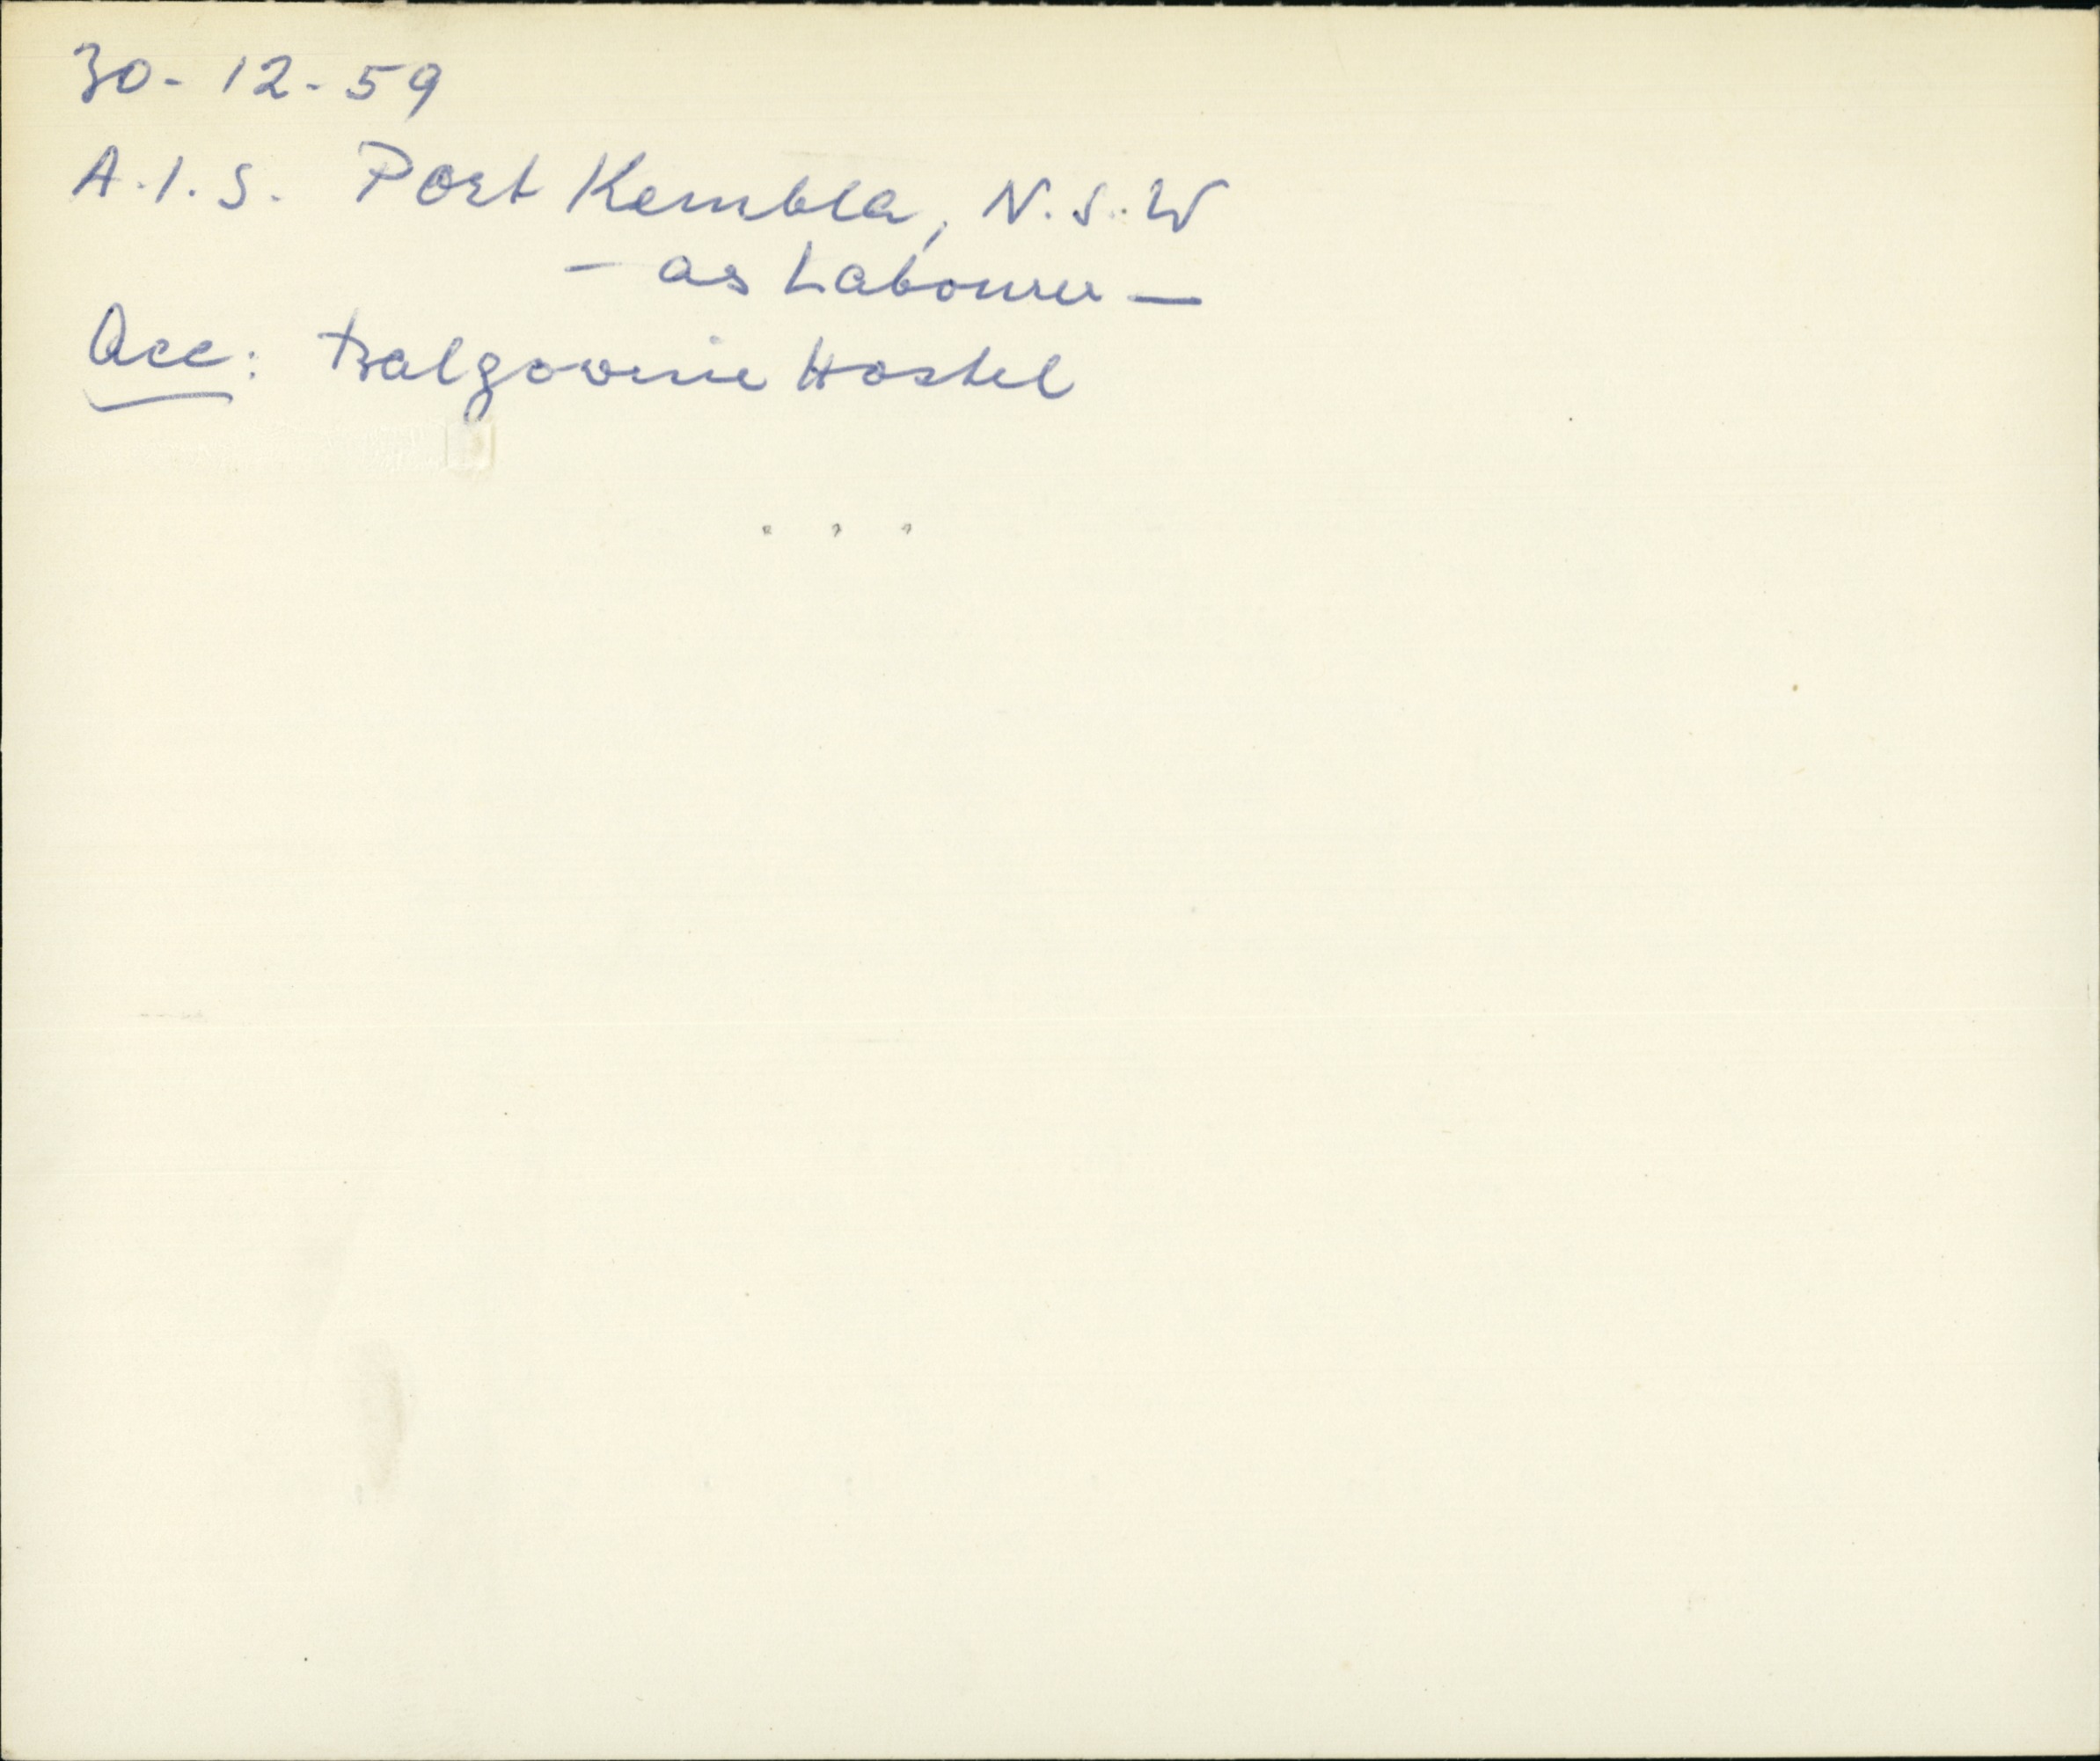 30-12-59
A.I.S. Port Kembla, N.S.W
- as Labourer -
Acc: Balgownie Hostel